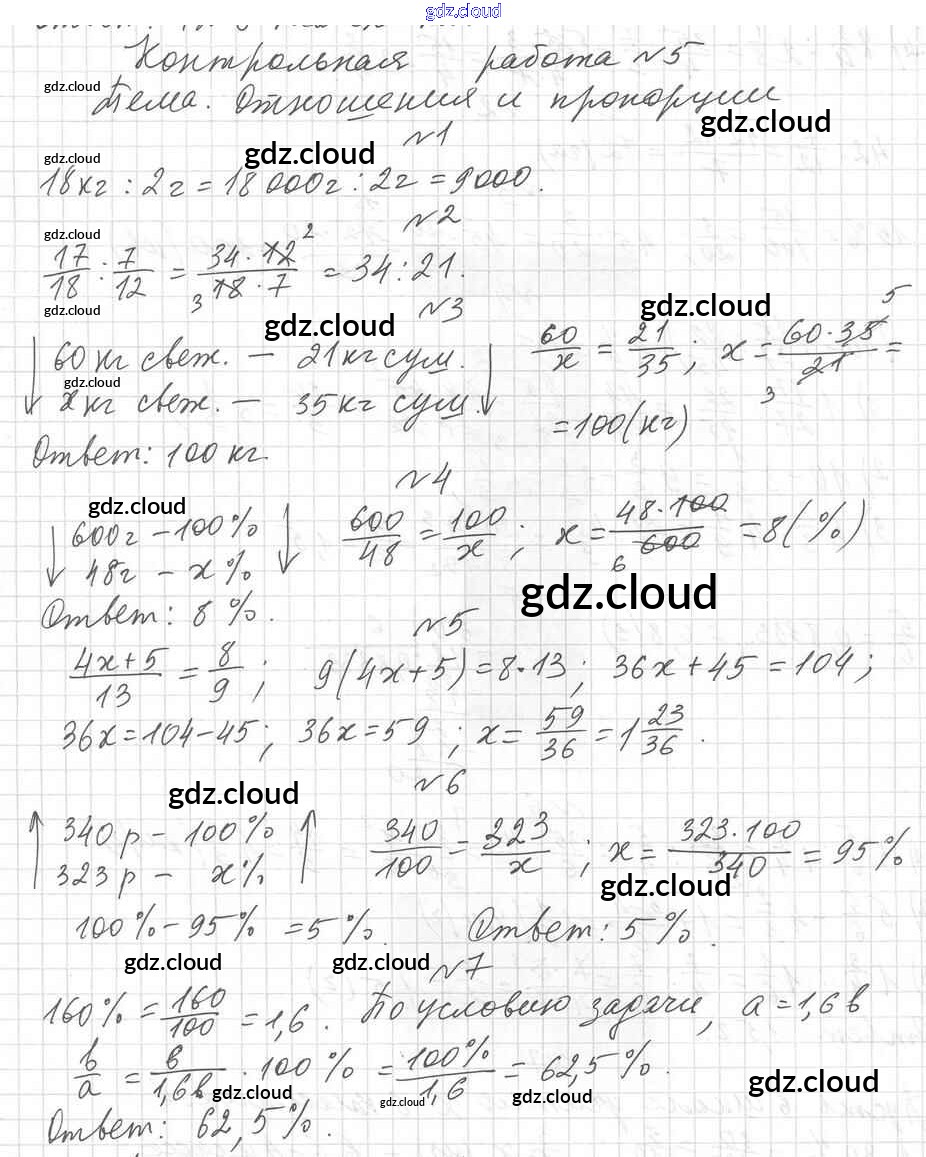 gdz.cloud
Контрольная работа №5
gdz.cloud
Тема. Отношения и пропорции
gdz.cloud
№1
gdz.cloud gdz.cloud
18кг : 2г = 18 000г : 2г = 9000.
№2
gdz.cloud
17/18 : 7/12 = 34·12/18·7 = 34 : 21.
2
3
gdz.cloud
№3
gdz.cloud gdz.cloud
↓ 60 кг свеж. — 21 кг суш. ↓ 60/x = 21/35 ; x = 60·35/21 =
5
3
gdz.cloud
x кг свеж. — 35 кг суш.
= 100 (кг)
Ответ: 100 кг.
№4
gdz.cloud
↓ 600г – 100% ↓ 600/48 = 100/x ; x = 48·100/600 = 8 (%)
6
48г – x %
gdz.cloud
Ответ: 8 %.
№5
4x+5/13 = 8/9 ; 9(4x+5) = 8·13 ; 36x + 45 = 104 ;
36x = 104 – 45 ; 36x = 59 ; x = 59/36 = 1 23/36 .
№6
gdz.cloud
↑ 340 р – 100% ↑ 340/100 = 323/x ; x = 323·100/340 = 95%
323 р – x%
gdz.cloud
100% – 95% = 5%. Ответ: 5%.
gdz.cloud gdz.cloud
№7
160% = 160/100 = 1,6. По условию задачи, a = 1,6 в
b/a = в/1,6в · 100 % = 100%/1,6 = 62,5 %.
gdz.cloud gdz.cloud gdz.cloud gdz.cloud
Ответ: 62,5%.